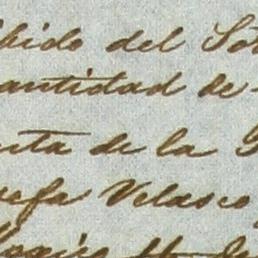 bido del
antidad de
nta de la
efa Velasco